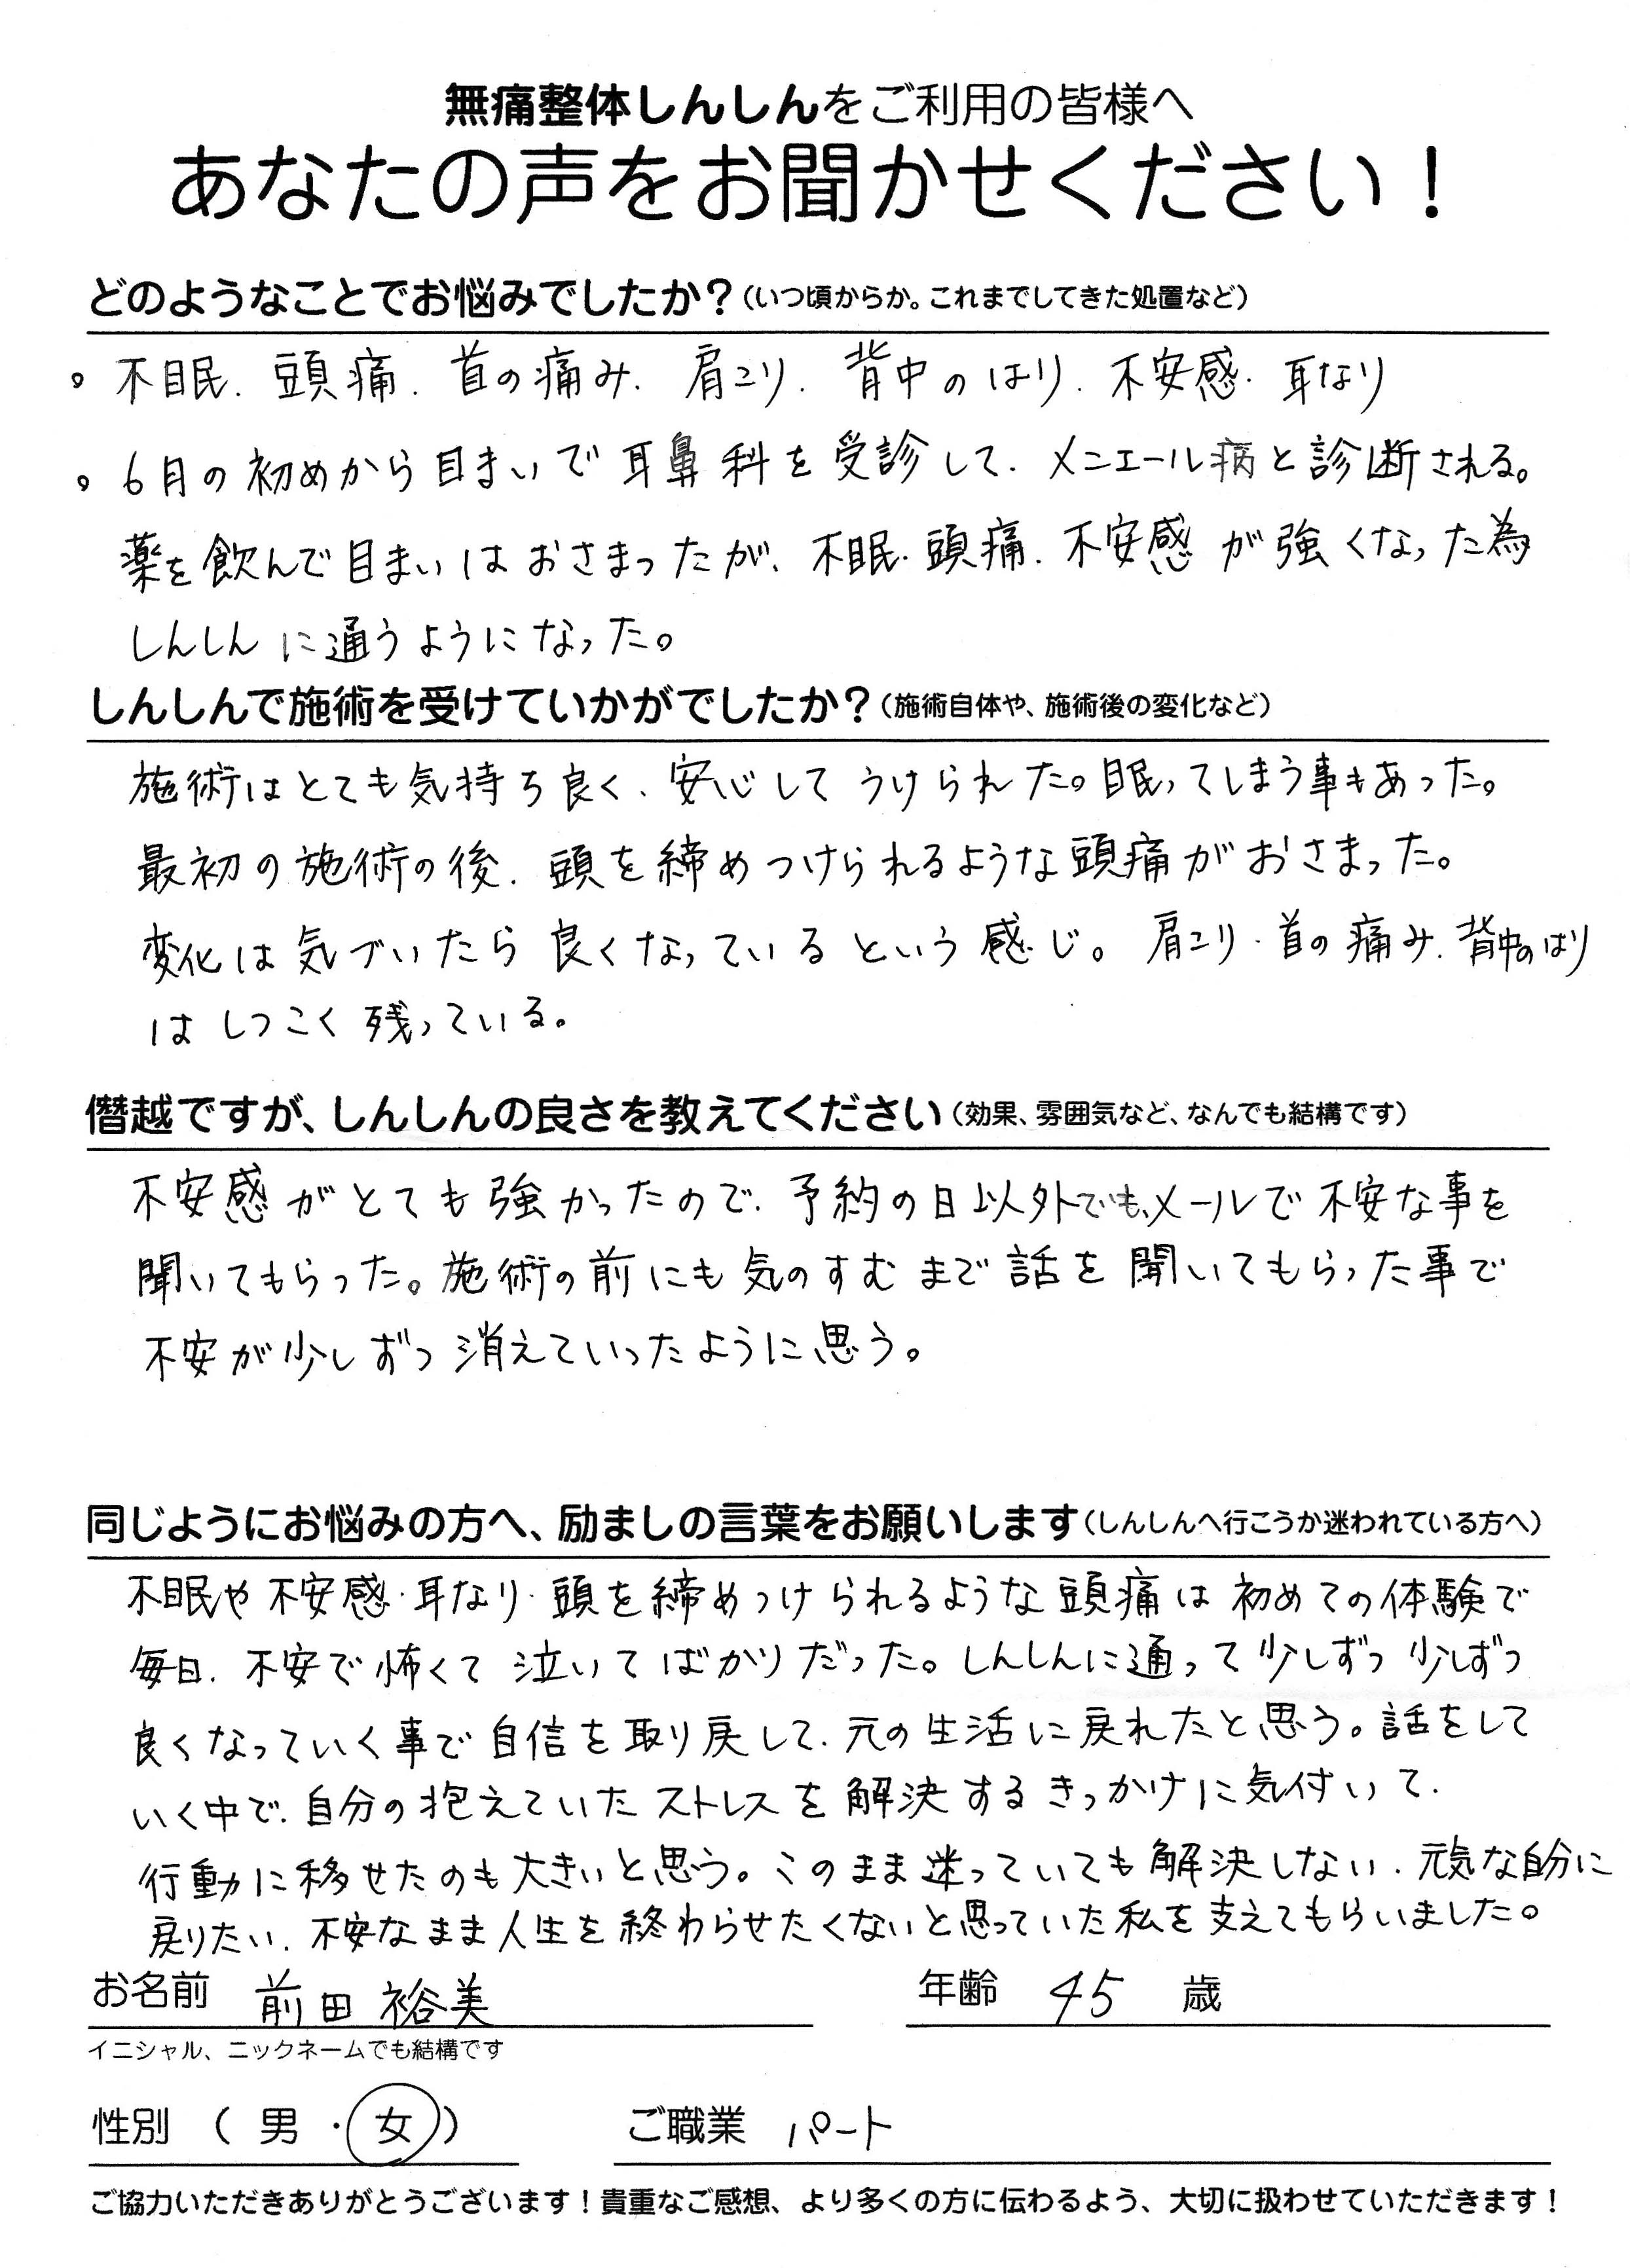 無痛整体しんしんをご利用の皆様へ
あなたの声をお聞かせください！
どのようなことでお悩みでしたか？（いつ頃からか。これまでしてきた処置など）
。不眠．頭痛．首の痛み．肩こり．背中のはり．不安感．耳なり
。6月の初めから目まいで耳鼻科を受診して．メニエール病と診断される。
薬を飲んで目まいはおさまったが、不眠．頭痛．不安感が強くなった為
しんしんに通うようになった。
しんしんで施術を受けていかがでしたか？（施術自体や、施術後の変化など）
施術はとても気持ち良く、安心してうけられた。眠ってしまう事もあった。
最初の施術の後．頭を締めつけられるような頭痛がおさまった。
変化は気づいたら良くなっているという感じ。肩こり．首の痛み．背中のはり
はしつこく残っている。
僭越ですが、しんしんの良さを教えてください（効果、雰囲気など、なんでも結構です）
不安感がとても強かったので．予約の日以外でも、メールで不安な事を
聞いてもらった。施術の前にも気のすむまで話を聞いてもらった事で
不安が少しずつ消えていったように思う。
同じようにお悩みの方へ、励ましの言葉をお願いします（しんしんへ行こうか迷われている方へ）
不眠や不安感．耳なり．頭を締めつけられるような頭痛は初めての体験で
毎日．不安で怖くて泣いてばかりだった。しんしんに通って少しずつ少しずつ
良くなっていく事で自信を取り戻して．元の生活に戻れたと思う。話をして
いく中で．自分の抱えていたストレスを解決するきっかけに気付いて．
行動に移せたのも大きいと思う。このまま迷っていても解決しない．元気な自分に
戻りたい．不安なまま人生を終わらせたくないと思っていた私を支えてもらいました。
お名前 前田 裕美 年齢 45 歳
イニシャル、ニックネームでも結構です
性別 （ 男 ・ 女 ） ご職業 パート
ご協力いただきありがとうございます！貴重なご感想、より多くの方に伝わるよう、大切に扱わせていただきます！